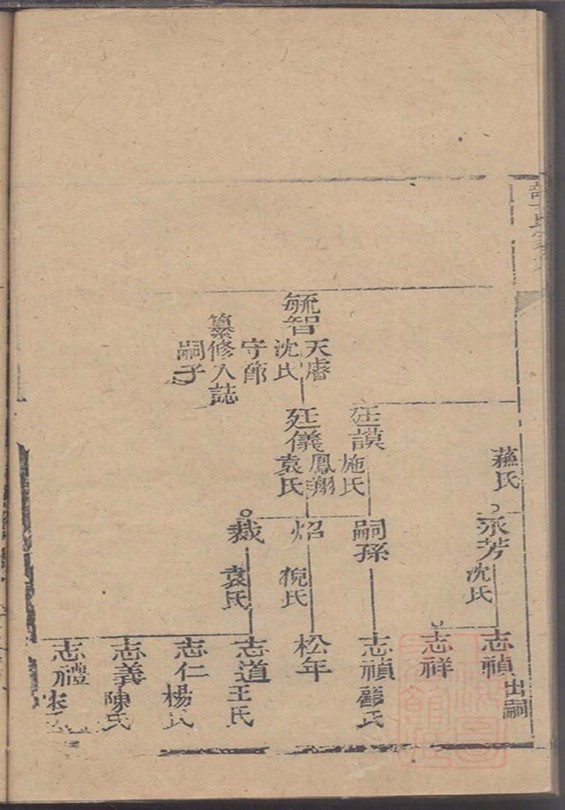 蘓氏
永芳
沈氏
志禎
出嗣
志祥
廷謨
施氏
嗣孫
志禎
嚴氏
毓智
天㿞
沈氏
守節
纂修入誌
嗣子
廷儀
鳳翔
袁氏
炤
倪氏
松年
裁
袁氏
志道
王氏
志仁
楊氏
志義
陳氏
志禮